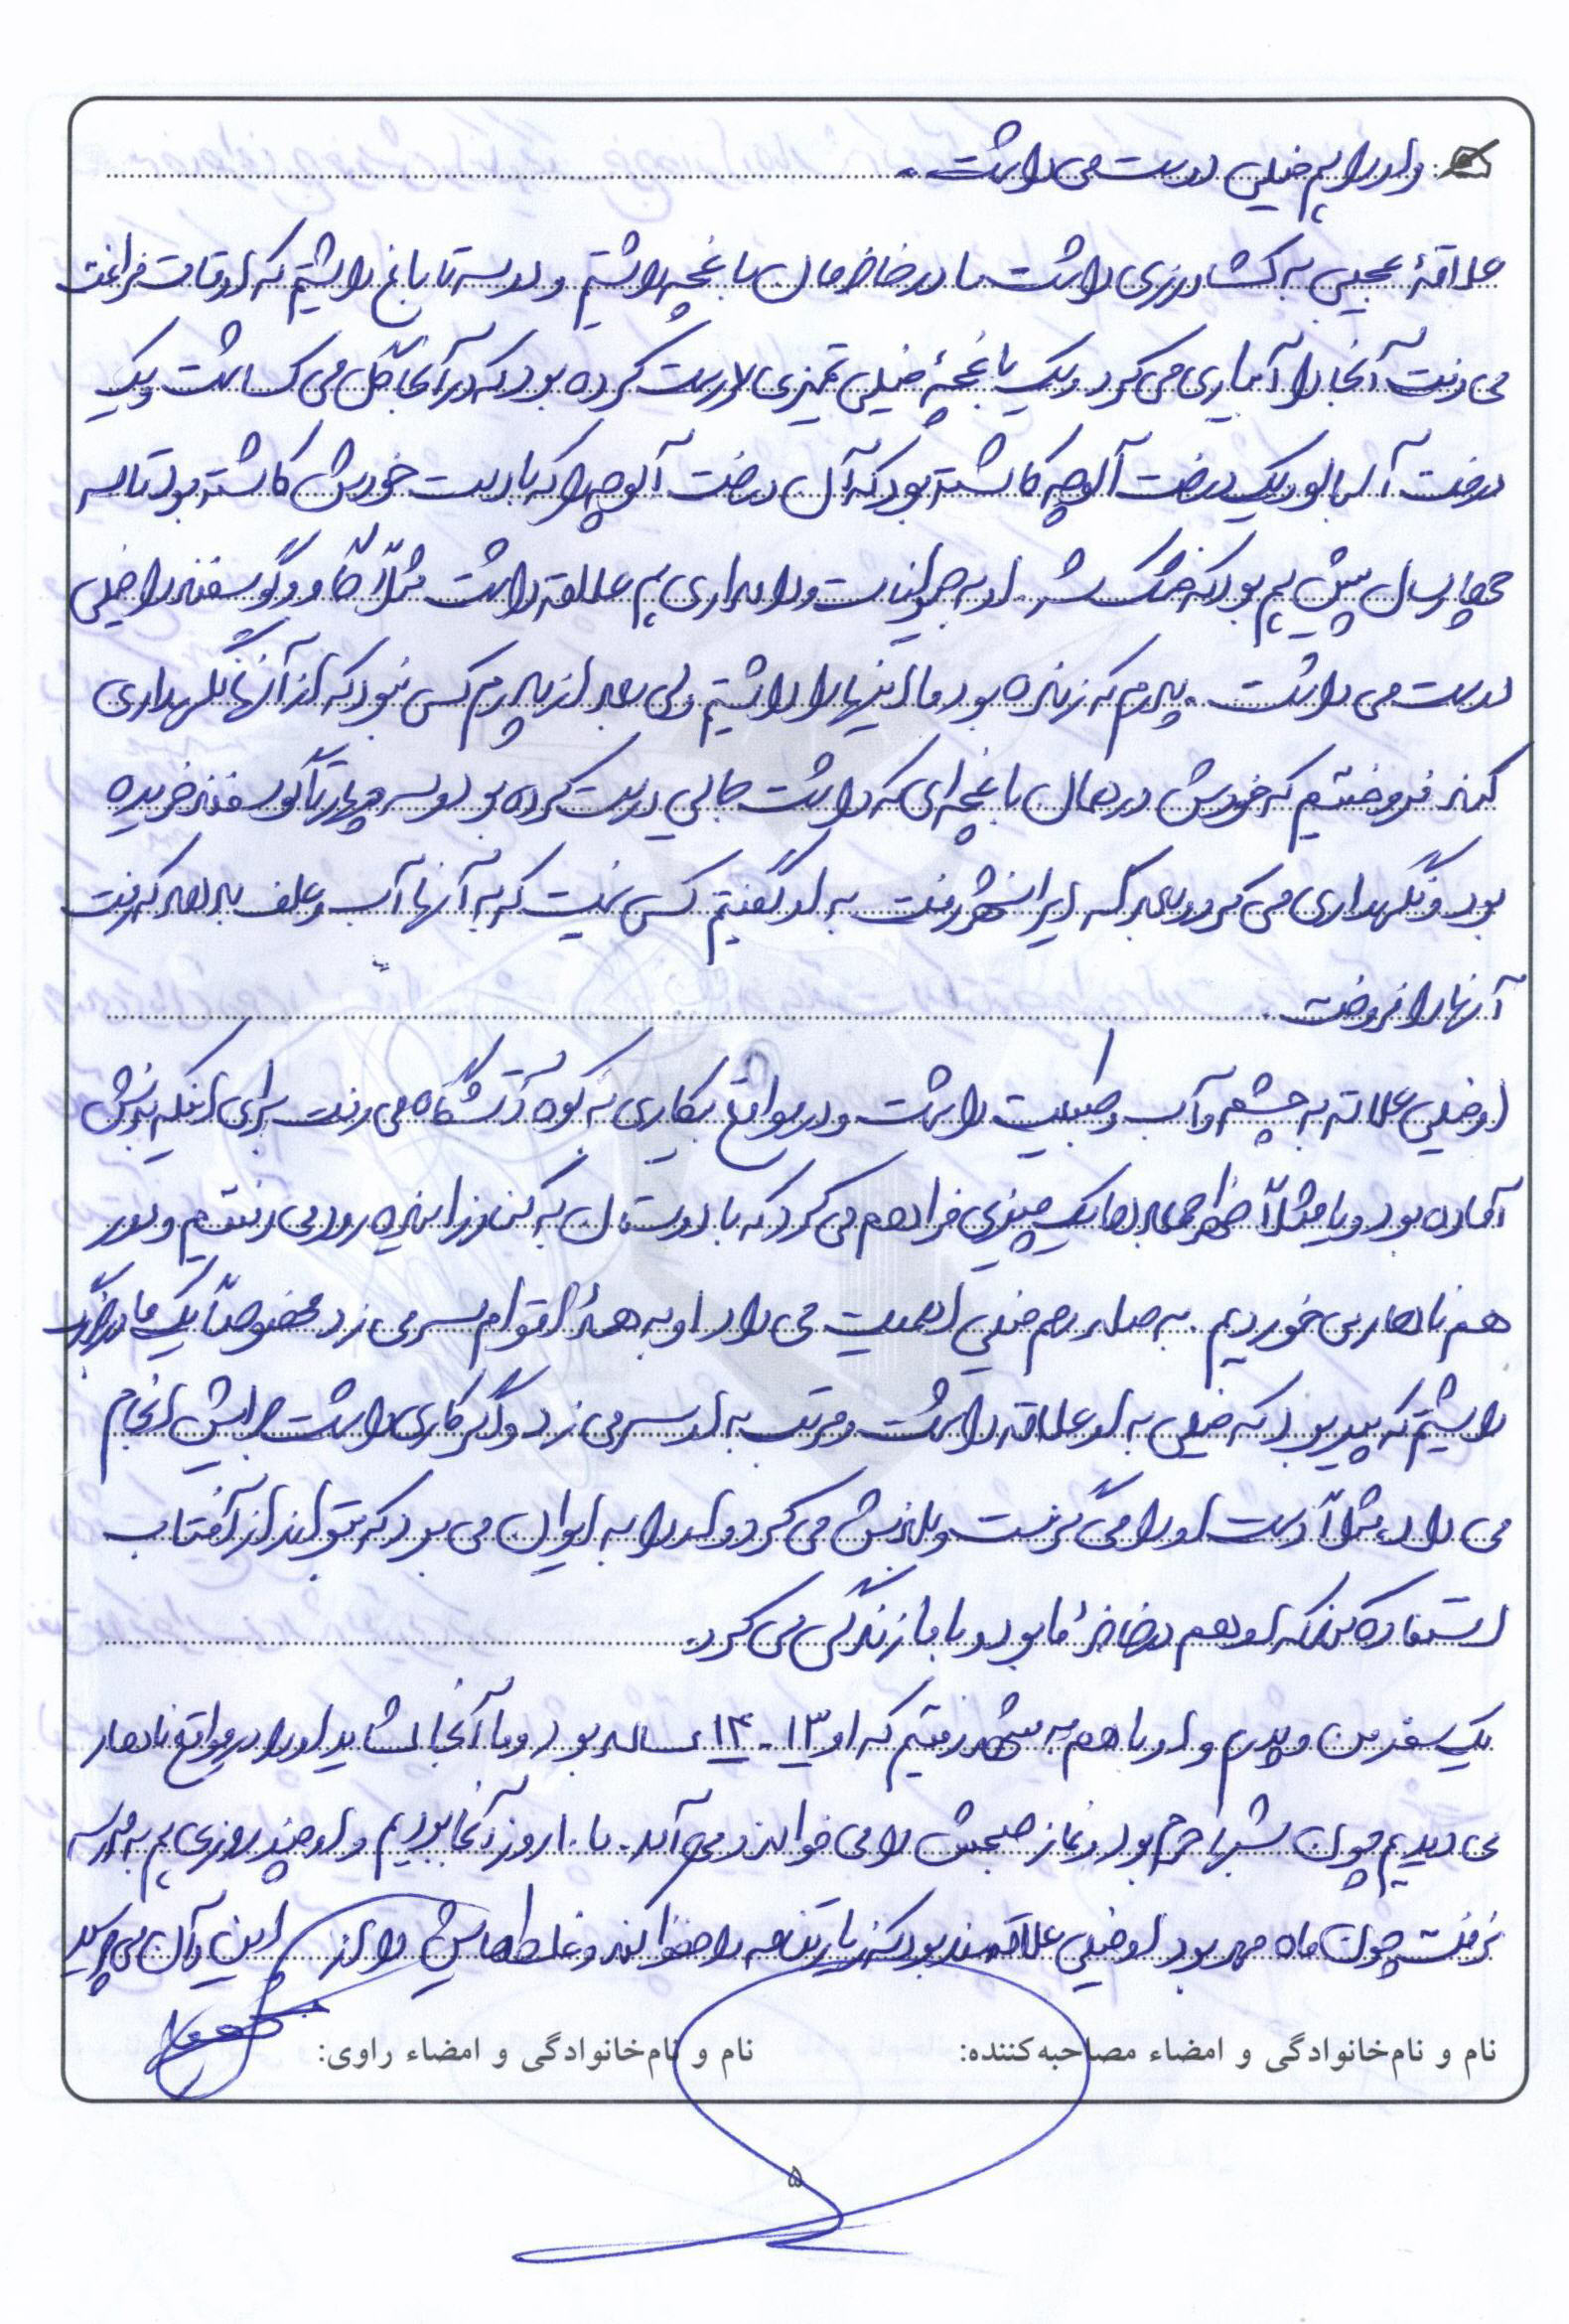 و او را هم خیلی دوست می داشت.
علاقهٔ عجیبی به کشاورزی داشت ما در خانه مان باغچه داشتیم و دو سه تا باغ داشتیم که اوقات فراغت
می رفت آنجا را آبیاری می کرد و یک باغچهٔ خیلی تمیزی درست کرده بود که در آنجا گل می کاشت و یک
درخت آلبالو و یک درخت آلوچه کاشته بود که آن درخت آلوچه را که با دست خودش کاشته بود تا سه
چهار سال پیش هم بود که خشک شد. او به حیوانات و دامداری هم علاقه داشت مثلاً گاو و گوسفند را خیلی
دوست می داشت. پدرم که زنده بود ما اینها را داشتیم ولی بعد از پدرم کسی نبود که از آنها نگهداری
کند فروختیم که خودش در همان باغچه ای که داشت جایی درست کرده بود و سه چهار تا گوسفند خریده
بود و نگهداری می کرد و بعد که ایرانشهر رفت به او گفتیم کسی نیست که به آنها آب و علف بدهد که رفت
آنها را فروخت.
او خیلی علاقه به چشمه و آب و طبیعت داشت و در مواقع بیکاری به کوه آتشگاه می رفت برای اینکه بدنش
آماده بود و یا مثلاً ظهر جمعه ها یک چیزی فراهم می کرد که با دوستان به کنار زاینده رود می رفتیم و دور
هم ناهار می خوردیم. به صله رحم خیلی اهمیت می داد او به همهٔ اقوام سر می زد مخصوصاً یک مادربزرگ
داشتیم که پیر بود که خیلی به او علاقه داشت و مرتب به او سر می زد و اگر کاری داشت برایش انجام
می داد، مثلاً دست او را می گرفت و بلندش می کرد و او را به ایوان می برد که بتواند از آفتاب
استفاده کند که او هم در خانهٔ ما بود و با ما زندگی می کرد.
یک سفر من و پدرم و او با هم به مشهد رفتیم که او ۱۳ - ۱۴ ساله بود و ما آنجا شاید او را در مواقع ناهار
می دیدیم چون شبها حرم بود و نماز صبحش را می خواند و می آمد. ما ۱۰ روز آنجا بودیم و او چند روزی هم به مدرسه
نرفت چون ماه مهر بود. او خیلی علاقه مند بود که زیارتنامه را بخواند و غلطهایش را از این و آن می پرسید
نام و نام‌خانوادگی و امضاء مصاحبه‌کننده: نام و نام‌خانوادگی و امضاء راوی:
۵